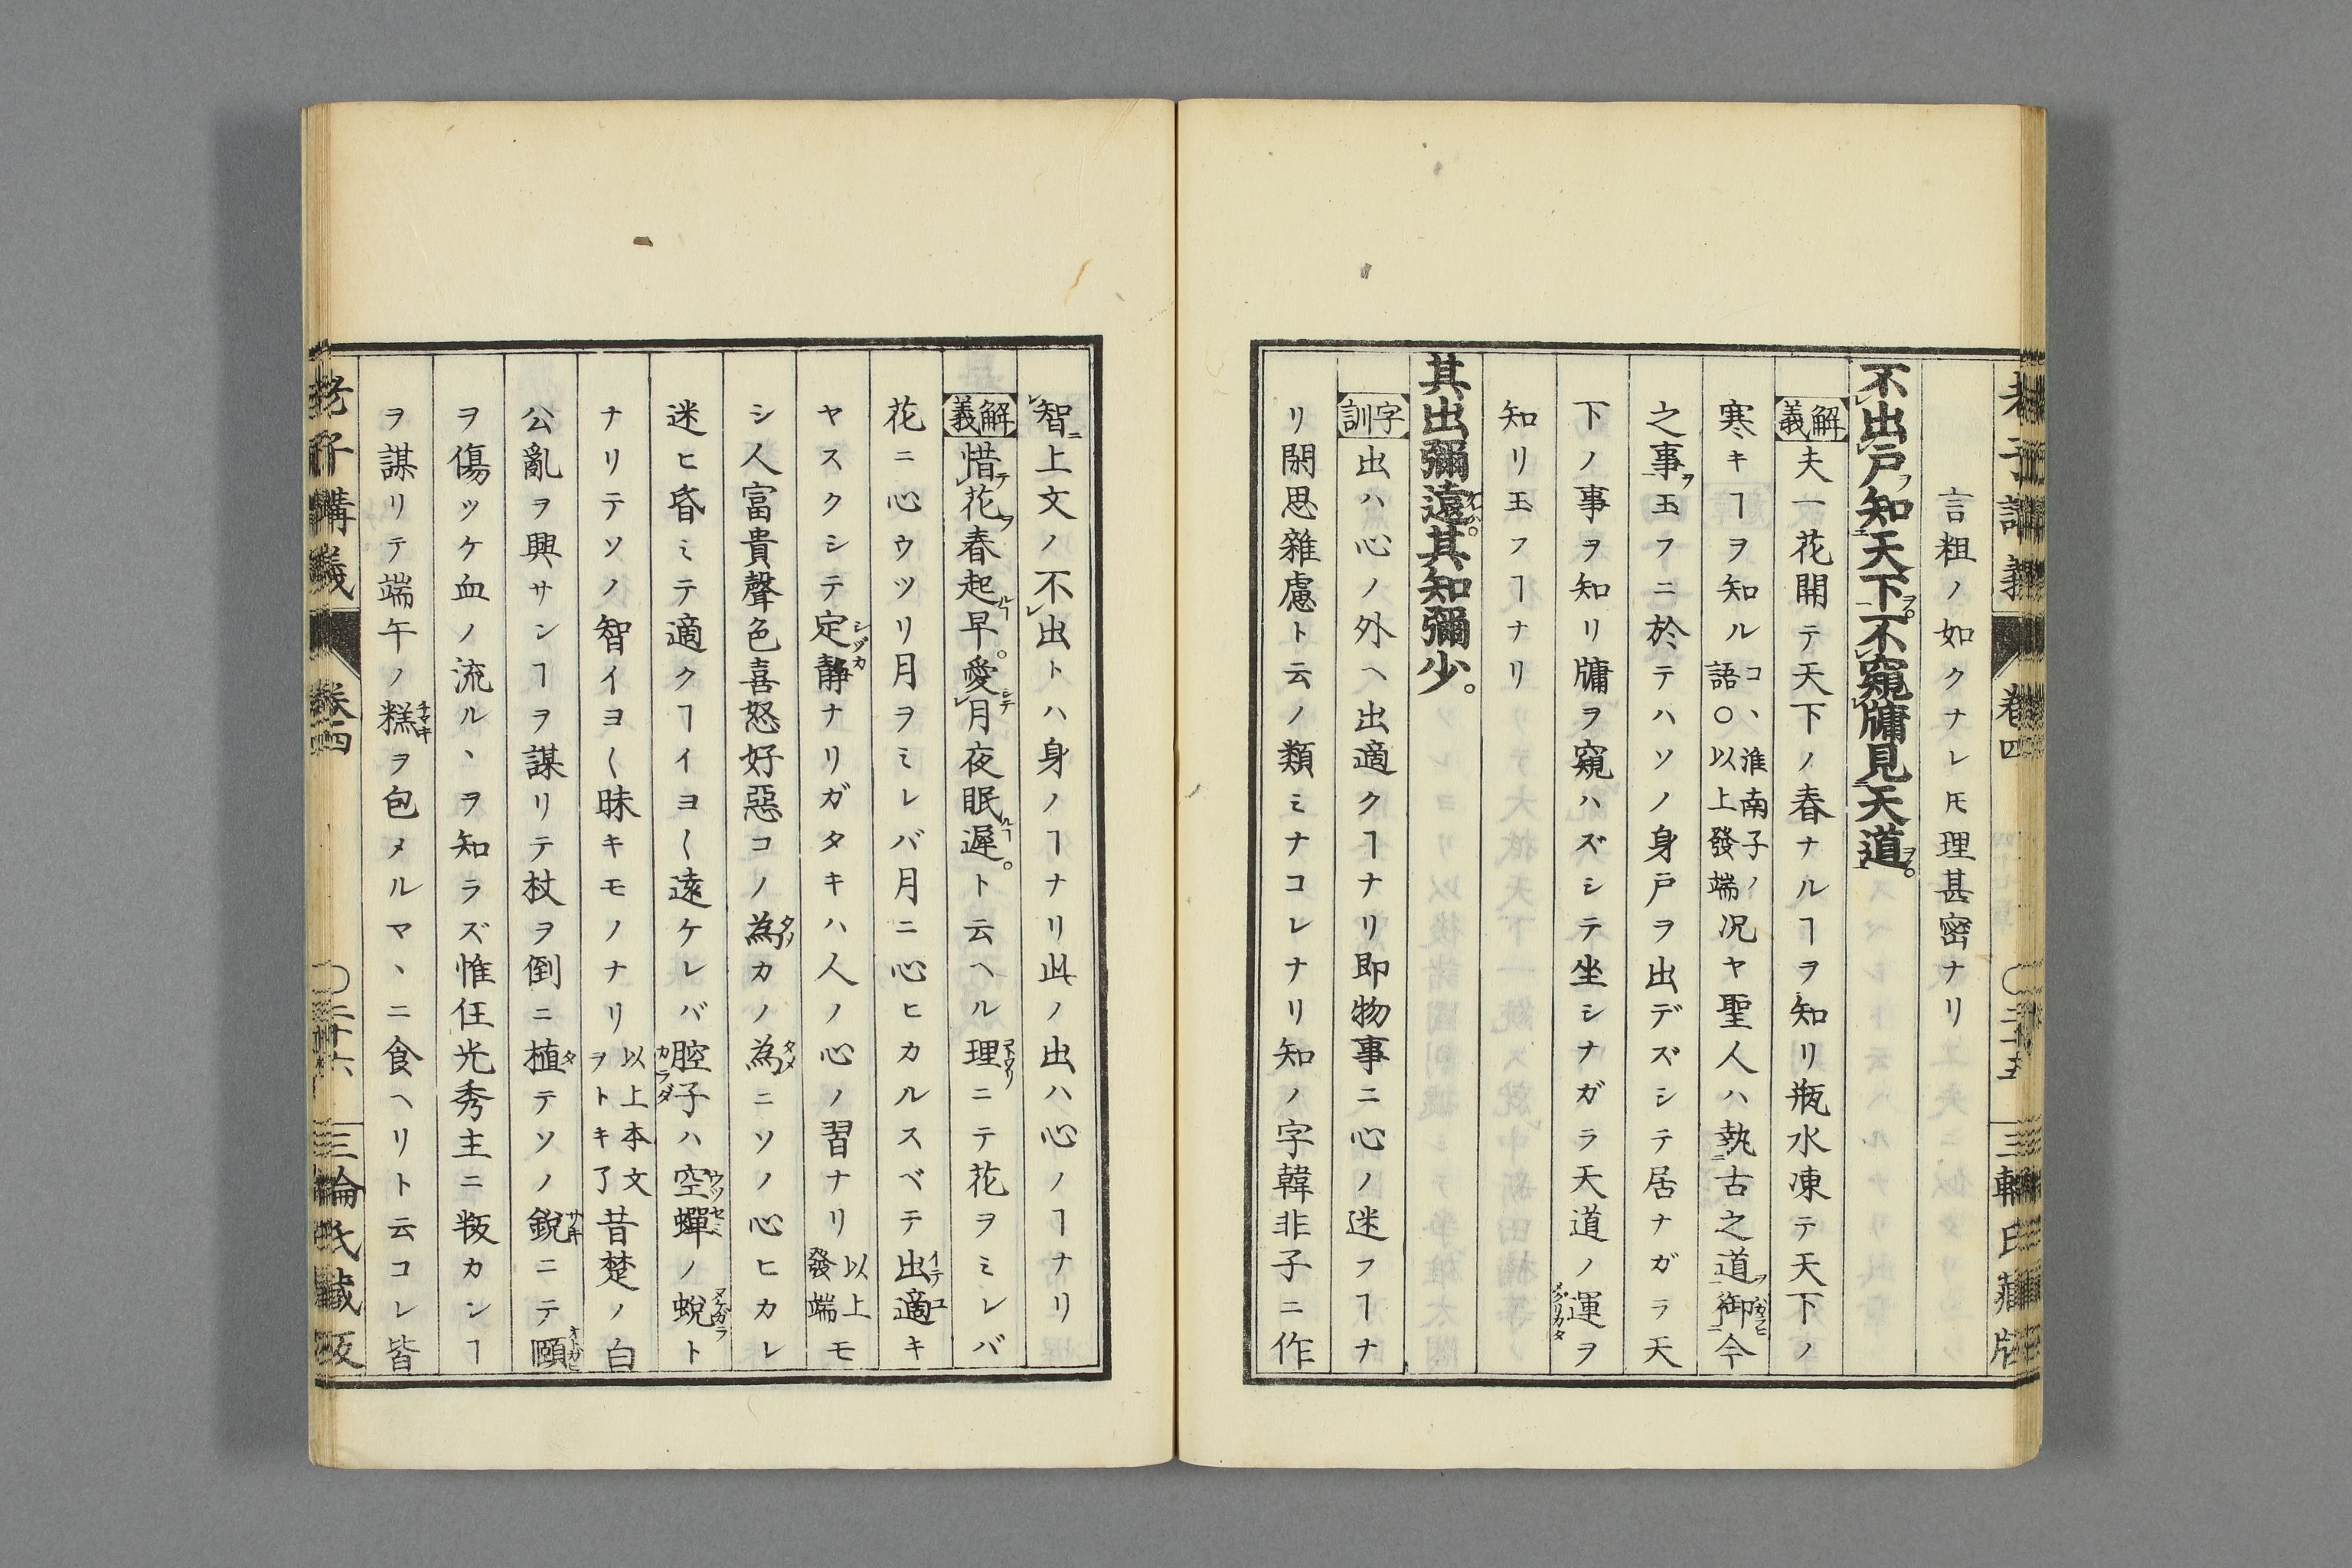 老子講義 卷四 〇二十五 三輪氏藏版
言粗ノ如クナレ𪜈理甚密ナリ
不出戸ヲ知天下ヲ。不窺牖見天道ヲ。
解義 夫一花開テ天下ノ春ナルヿヲ知リ瓶水凍テ天下ノ
寒キヿヲ知ルコヽ淮南子ノ語〇以上發端況ヤ聖人ハ執古之道ヲ御今
之事ヲ玉フニ於テハソノ身戸ヲ出デズシテ居ナガラ天
下ノ事ヲ知リ牖ヲ窺ハズシテ坐シナガラ天道ノ運メグリカタヲ
知リ玉フヿナリ
其出彌遠ケレバ。其知彌少。
字訓 出ハ心ノ外ヘ出適クヿナリ即物事ニ心ノ迷フヿナ
リ閑思雜慮ト云ノ類ミナコレナリ知ノ字韓非子ニ作
智ニ上文ノ不出トハ身ノヿナリ此ノ出ハ心ノヿナリ
解義 惜テ花ヲ春起ルヿ早。愛シテ月夜眠ルヿ遲。ト云ヘル理コトワリニテ花ヲミレバ
花ニ心ウツリ月ヲミレバ月ニ心ヒカルスベテ出イテ適ユキ
ヤスクシテ定靜シヅカナリガタキハ人ノ心ノ習ナリ以上發端モ
シ人富貴聲色喜怒好惡コノ為タメカノ為タメニソノ心ヒカレ
迷ヒ昏ミテ適クヿイヨ〱遠ケレバ腔子カラダハ空蟬ウツセミノ蛻ヌケガラト
ナリテソノ智イヨ〱昧キモノナリ以上本文ヲトキ了昔楚ノ白
公亂ヲ興サンヿヲ謀リテ杖ヲ倒ニ植タテソノ銳サキニテ頤オトガヒ
ヲ傷ツケ血ノ流ルヽヲ知ラズ惟任光秀主ニ叛カンヿ
ヲ謀リテ端午ノ糕チマキヲ包メルマヽニ食ヘリト云コレ皆
老子講義 卷四 〇二十六 三輪氏藏版